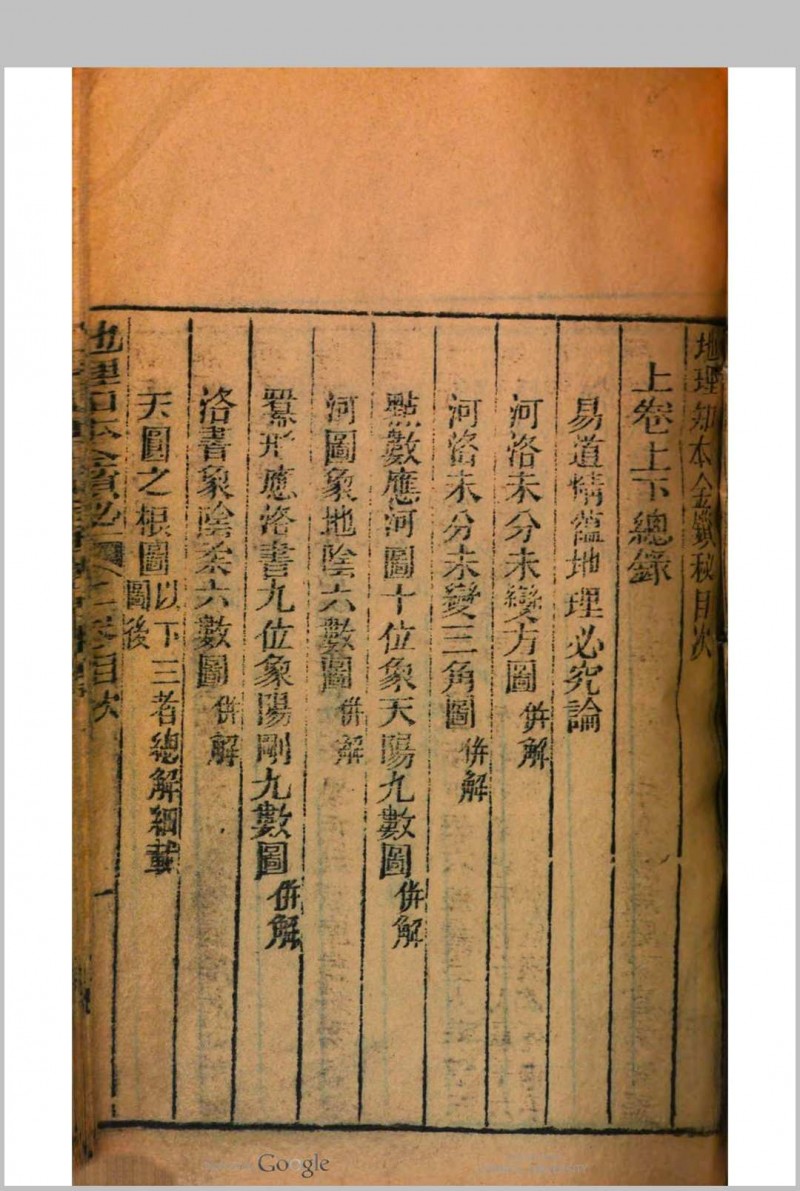 地理知本金鎖秘目次
上卷上下總錄
易道精蘊地理必究論
河洛未分未變方圖 併解
河洛未分未變三角圖 併解
點數應河圖十位象天陽九數圖 併解
河圖象地陰六數圖 併解
羃形應洛書九位象陽剛九數圖 併解
洛書象陰柔六數圖 併解
天圓之根圖 以下三者總解細載圖後
地理知本金鎖秘 卷目次
一
Google